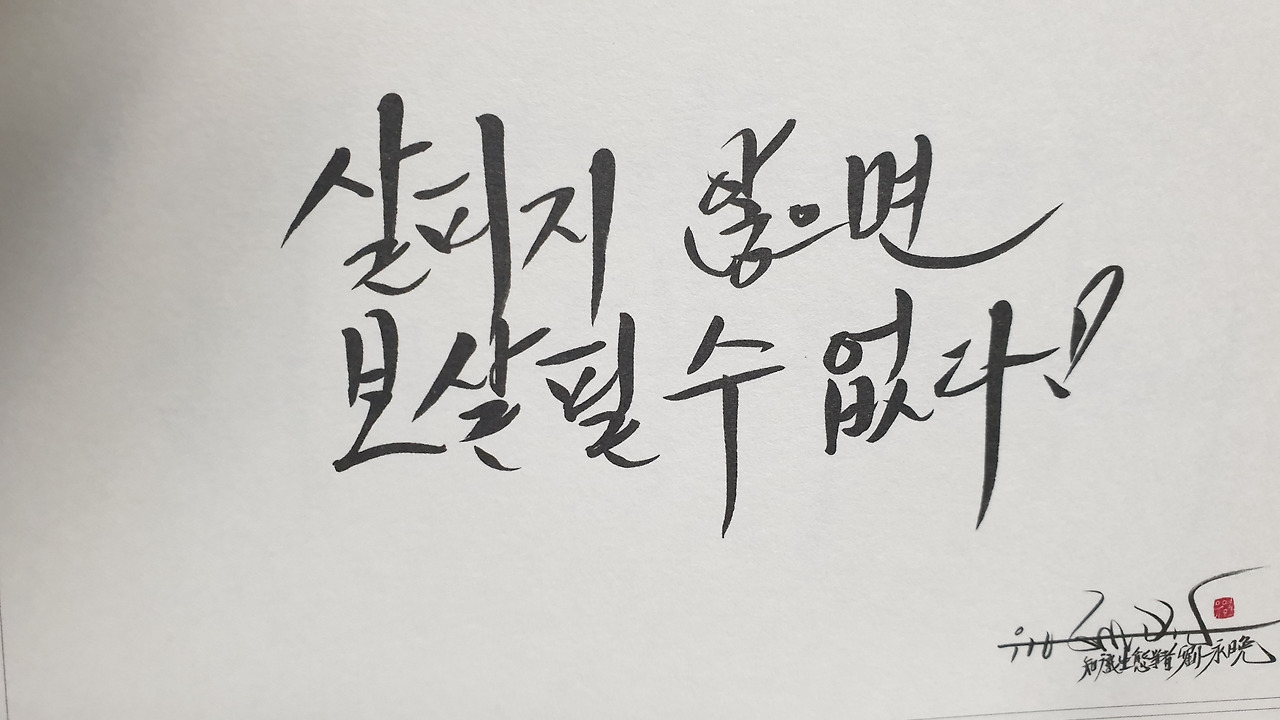 살피지 않으면
보살필 수 없다!
知識生態學者 劉永晩